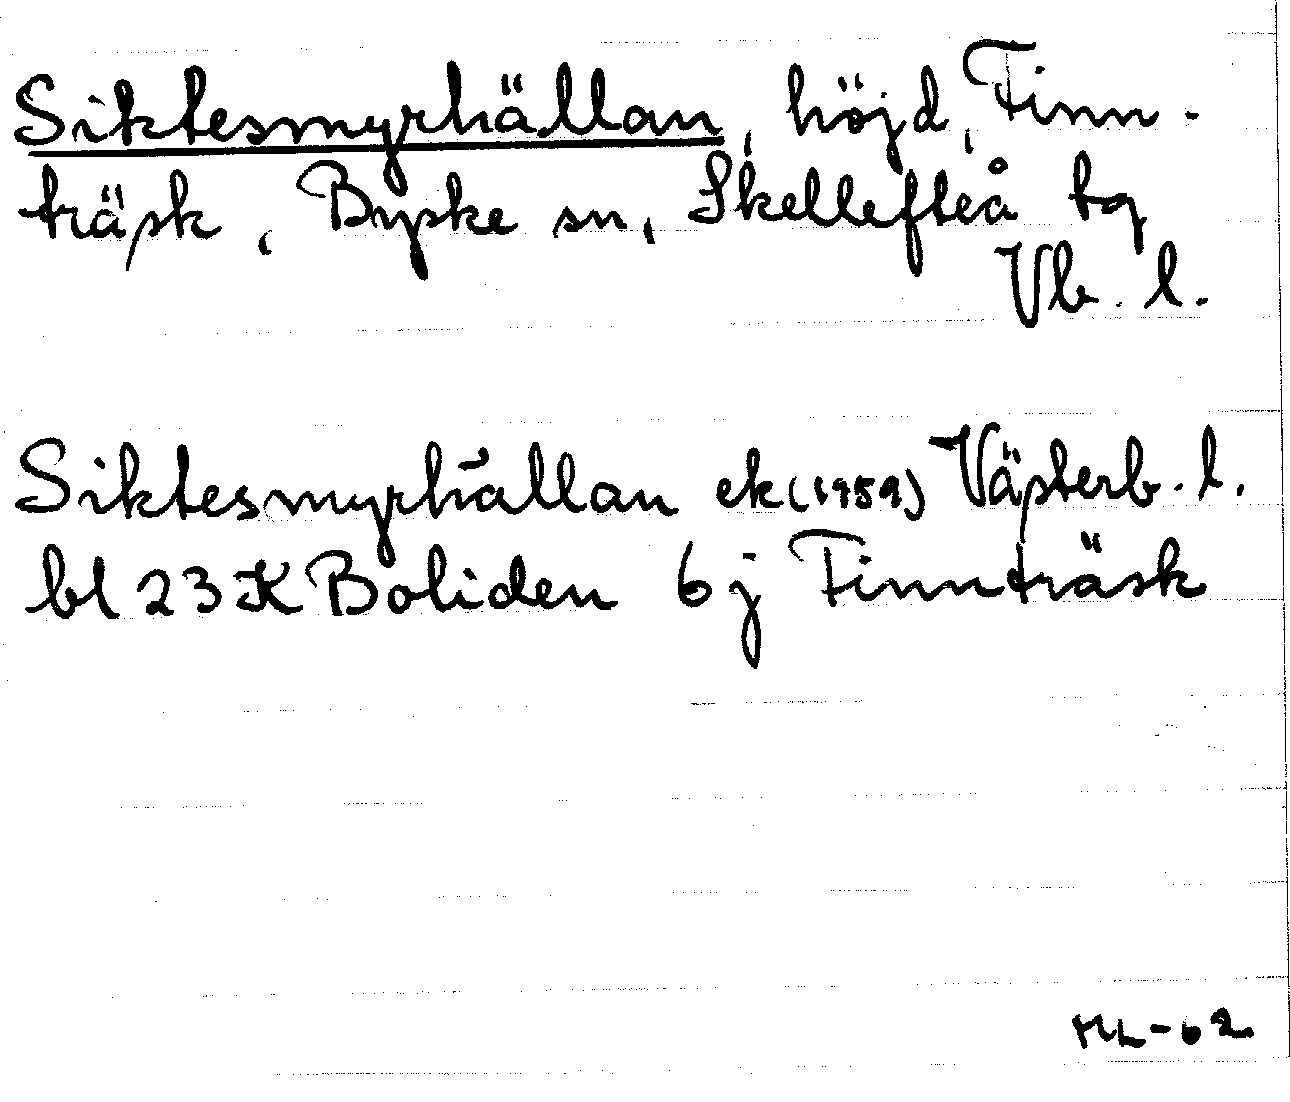 Siktesmyrhällan, höjd, Finn-
träsk, Byske sn, Skellefteå tg
Vb. l.
Siktesmyrhällan ek (1959) Västerb. l.
bl 23 K Boliden 6 j Finnträsk
ML-62